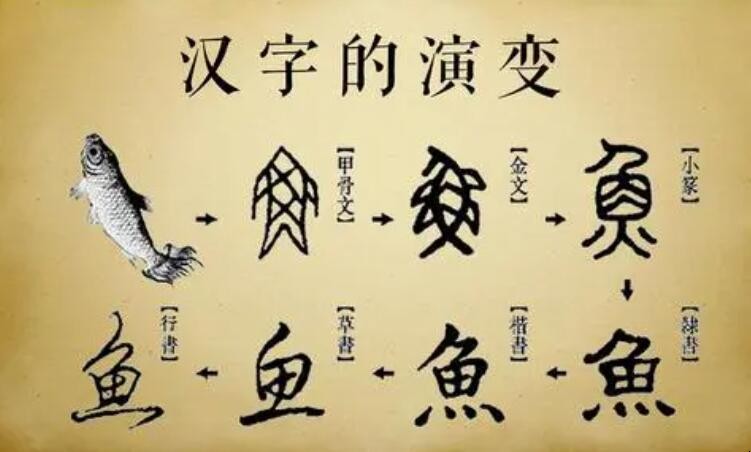 汉字的演变
【甲骨文】
【金文】
【小篆】
【隸書】
【楷書】
【草書】
【行書】
魚
魚
魚
魚
魚
鱼
鱼